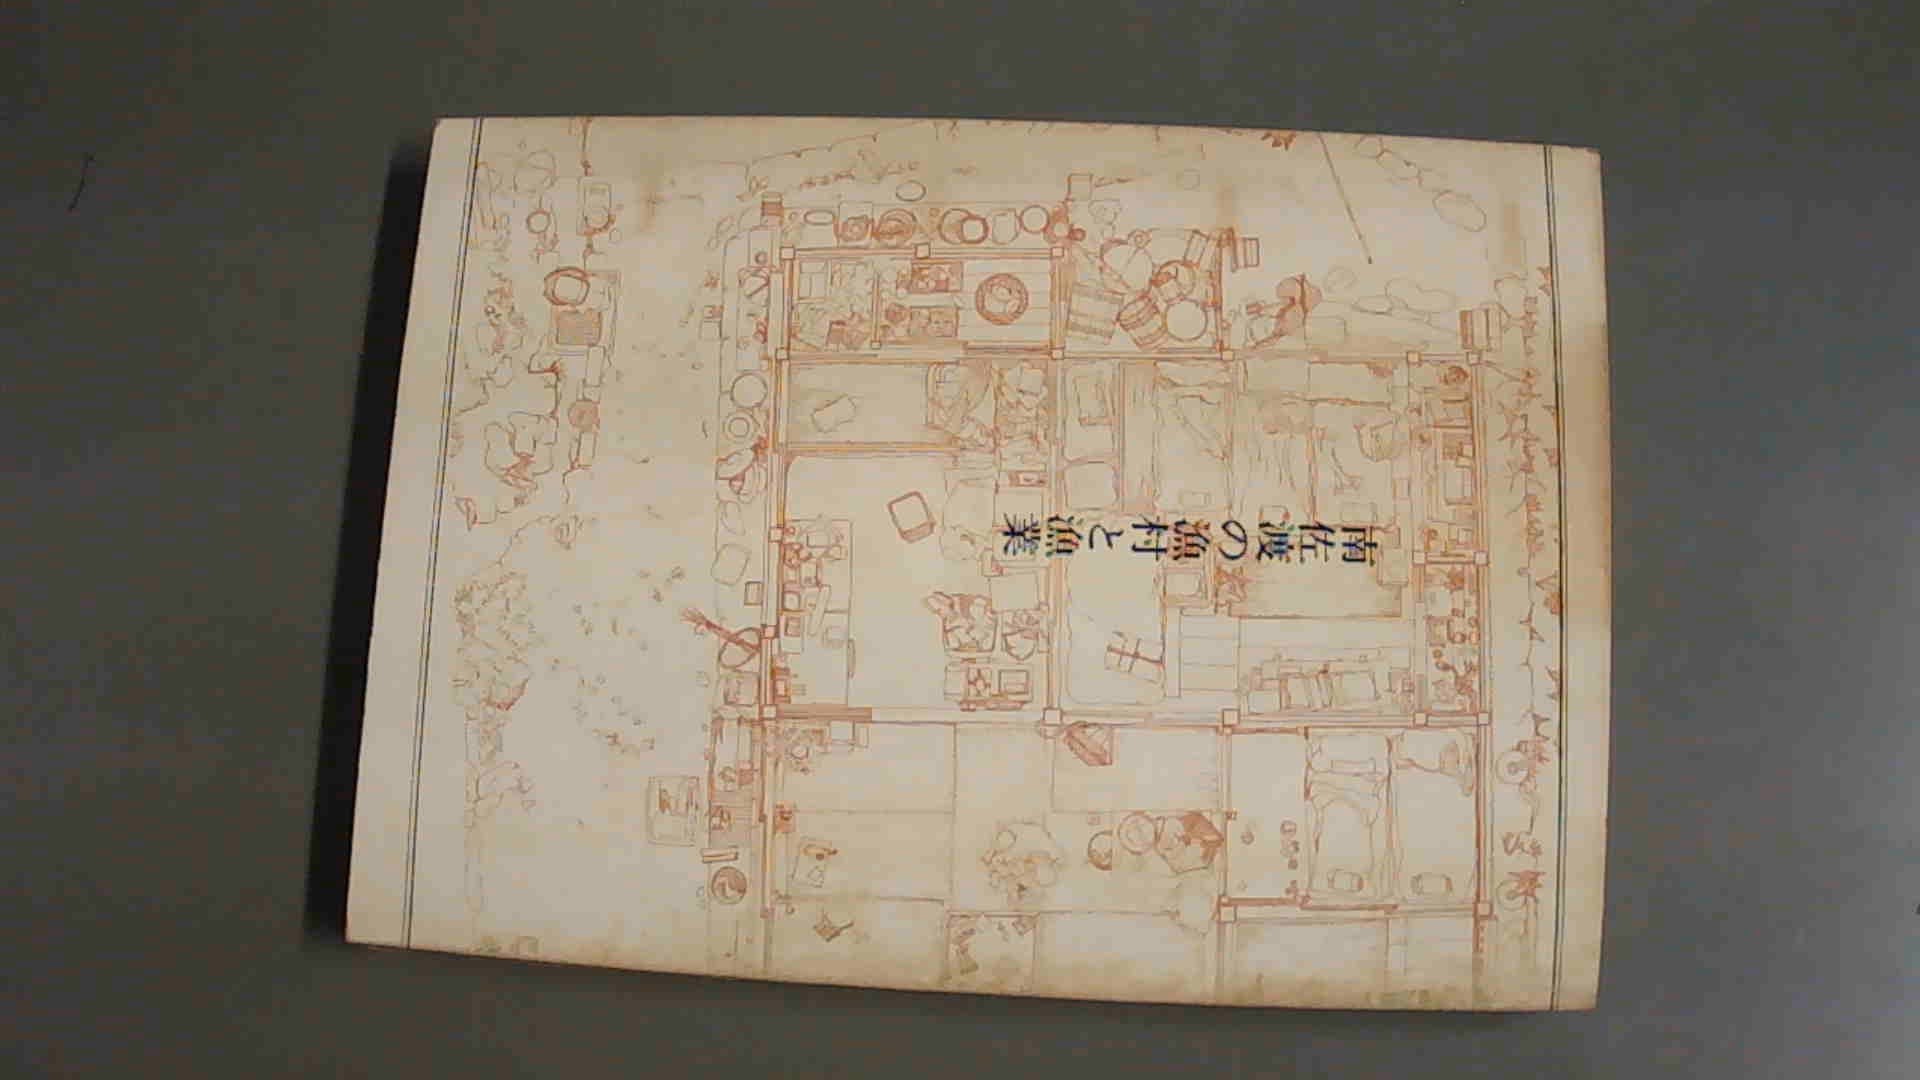 南佐渡の漁村と漁業